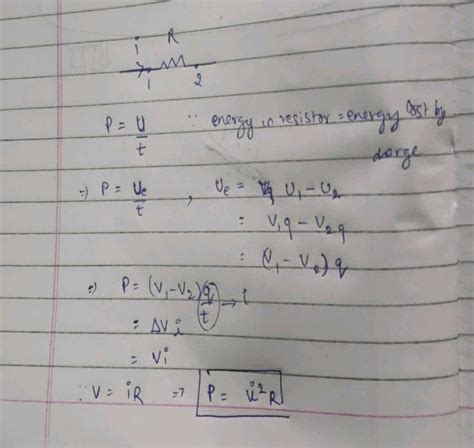 i R
1 2
P = U/t ∵ energy in resistor = energy lost by
charge
⇒ P = Ue/t , Ue = U₁ - U₂
= V₁q - V₂q
= (V₁ - V₂) q
⇒ P = (V₁ - V₂) q/t → i
= ΔV i
= Vi
∵ V = iR ⇒ P = i²R